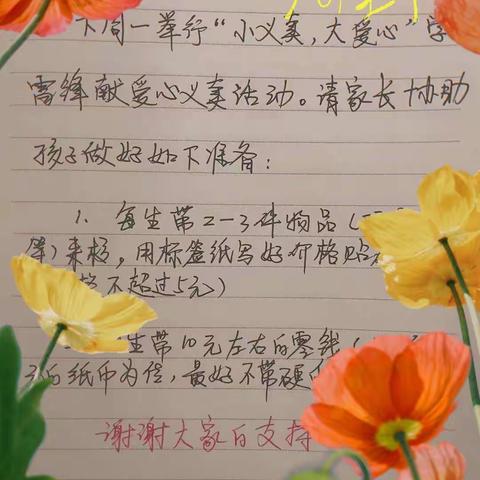 下周一举行“小义卖，大爱心”学
雷锋献爱心义卖活动。请家长协助
孩子做好如下准备：
1. 每生带2-3件物品（
等）来校，用标签纸写好价格贴
不超过5元）
生带10元左右的零钱（
的纸币为佳，最好不带硬
谢谢大家的支持